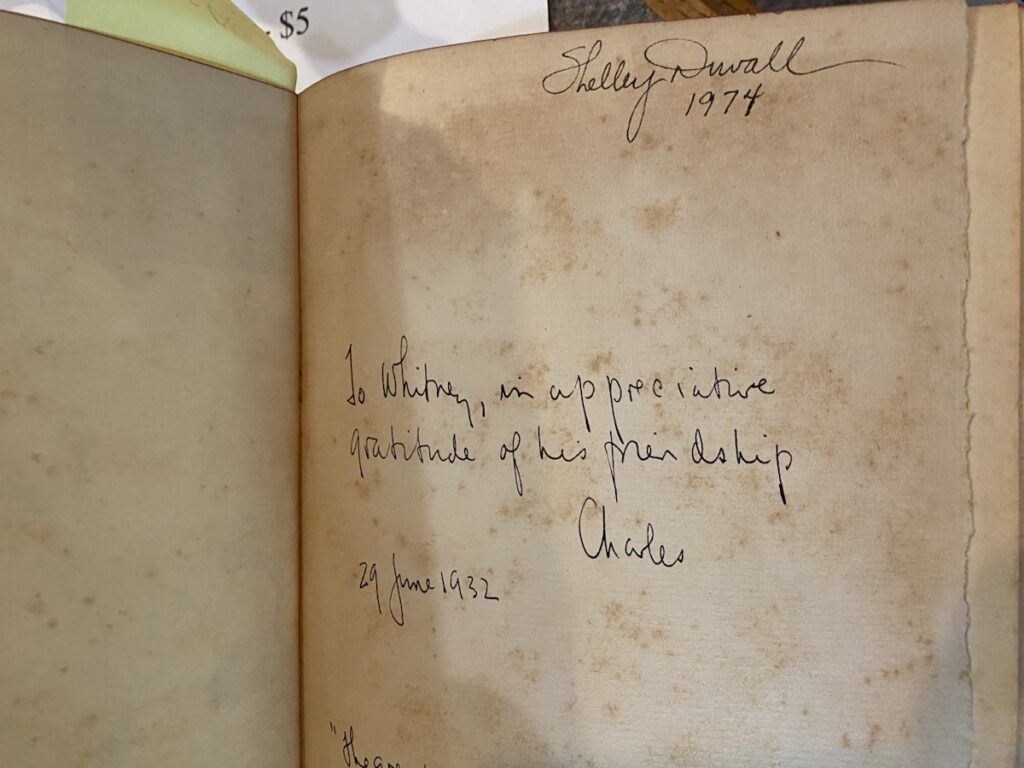 $5
Shelley Duvall
1974
To Whitney, in appreciative
gratitude of his friendship
Charles
29 June 1932